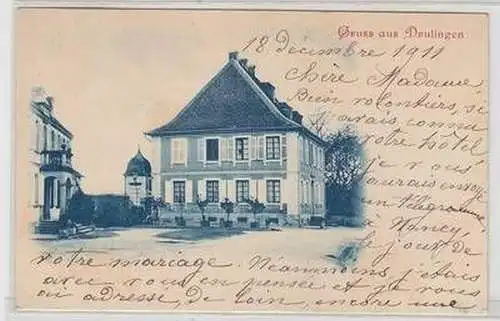 Gruss aus Deulingen
18 décembre 1911
Chère Madame
Bien volontiers, si
j'avais connu
votre hôtel
je vous
aurais envoyé
un télégramme,
à Nancy,
le jour de
votre mariage. Néanmoins j'étais
avec vous en pensée et je vous
adresse, de loin, encore une